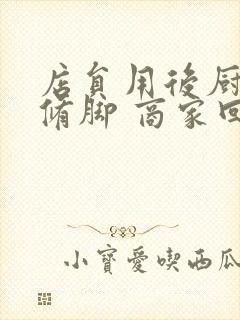 店員用後厨
脩脚 商家回
小寶愛喫西瓜